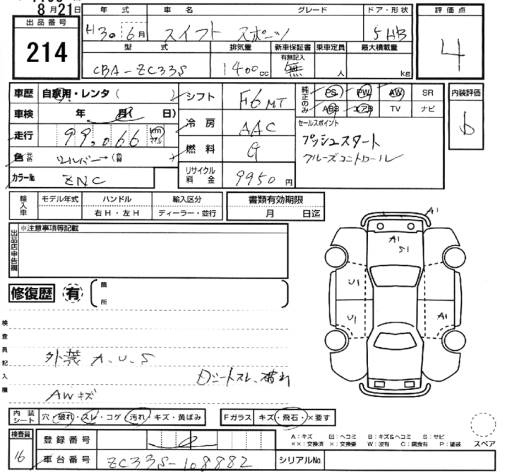 8月21日
出品番号 214
年式 H30年6月
車名 スイフト スポーツ
グレード
ドア・形状 5HB
評価点 4
型式 CBA-ZC33S
排気量 1400cc
新車保証書 有無記入 無
乗車定員 人
最大積載量 kg
車歴 自家用・レンタ(
車検 年 月 日
走行 99,066 km マイル
色 シルバー
カラーNo ZNC
シフト F6MT
冷房 AAC
燃料 G
リサイクル料金 9950円
純正のみ PS PW AW SR
ABS エアB TV ナビ
セールスポイント
プッシュスタート
クルーズコントロール
内装評価 b
輸入車 モデル年式 ハンドル 輸入区分
右H・左H ディーラー・並行
書類有効期限
月 日迄
出品店申告欄
※注意事項等記載
修復歴 有 箇所
検査員記入欄
外装 A.U.S
Dシートスレ、破れ
AWキズ
A1
A1
S1
U1
U1
A1
内装シート 穴・破れ・スレ・コゲ・汚れ・キズ・黄ばみ
Fガラス キズ・飛石・×要す
スペア
検査員 16
登録番号
車台番号 ZC33S-108882
シリアルNo
A:キズ U:ヘコミ B:キズ&ヘコミ S:サビ
××:交換済 ×:交換要 W:波有 C:腐食有 P:塗装